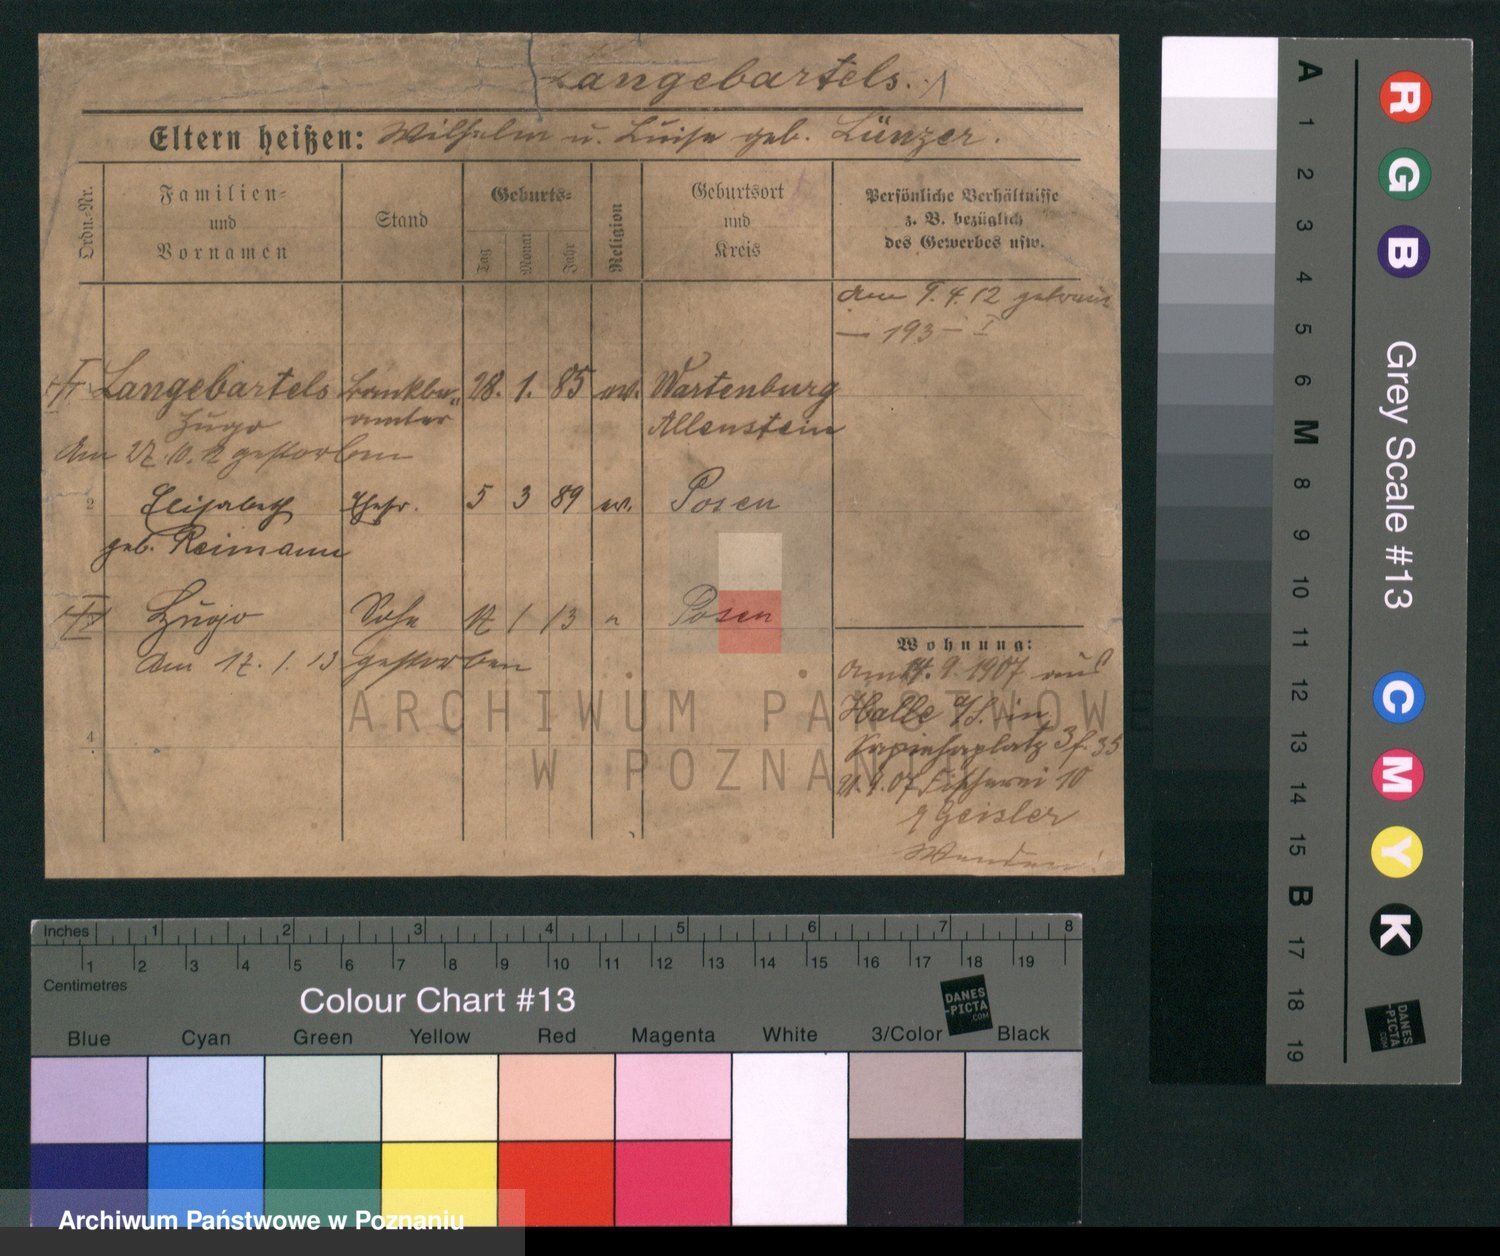 Langebartels.
Eltern heißen: Wilhelm u. Luise geb. Lünzer.
Ordn.-Nr.
Familien-
und
Vornamen
Stand
Geburts-
Tag
Monat
Jahr
Religion
Geburtsort
und
Kreis
Persönliche Verhältnisse
z. B. bezüglich
des Gewerbes usw.
am 9.4.12 getraut
— 193 — I
Langebartels Bankbe- 28. 1. 85 ev. Wartenburg
Hugo amter Allenstein
Am 27.10.12 gestorben
2 Elisabeth Ehefr. 5 3 89 ev. Posen
geb. Reimann
Hugo Sohn 12 1 13 " Posen
Am 17. 1. 13 gestorben
4
Wohnung:
Am 14. 9. 1907 aus
Halle a/S. in
Sapiehaplatz 3 f. 35
Fischerei 10
Geisler
Wenden!
ARCHIWUM PAŃSTWOWE
W POZNANIU
Inches 1 2 3 4 5 6 7 8
1 2 3 4 5 6 7 8 9 10 11 12 13 14 15 16 17 18 19
Centimetres
Colour Chart #13
DANES
-PICTA
.COM
Blue Cyan Green Yellow Red Magenta White 3/Color Black
Archiwum Państwowe w Poznaniu
A 1 2 3 4 5 6 M 8 9 10 11 12 13 14 15 B 17 18 19
R G B
Grey Scale #13
C M Y K
DANES
-PICTA
.COM